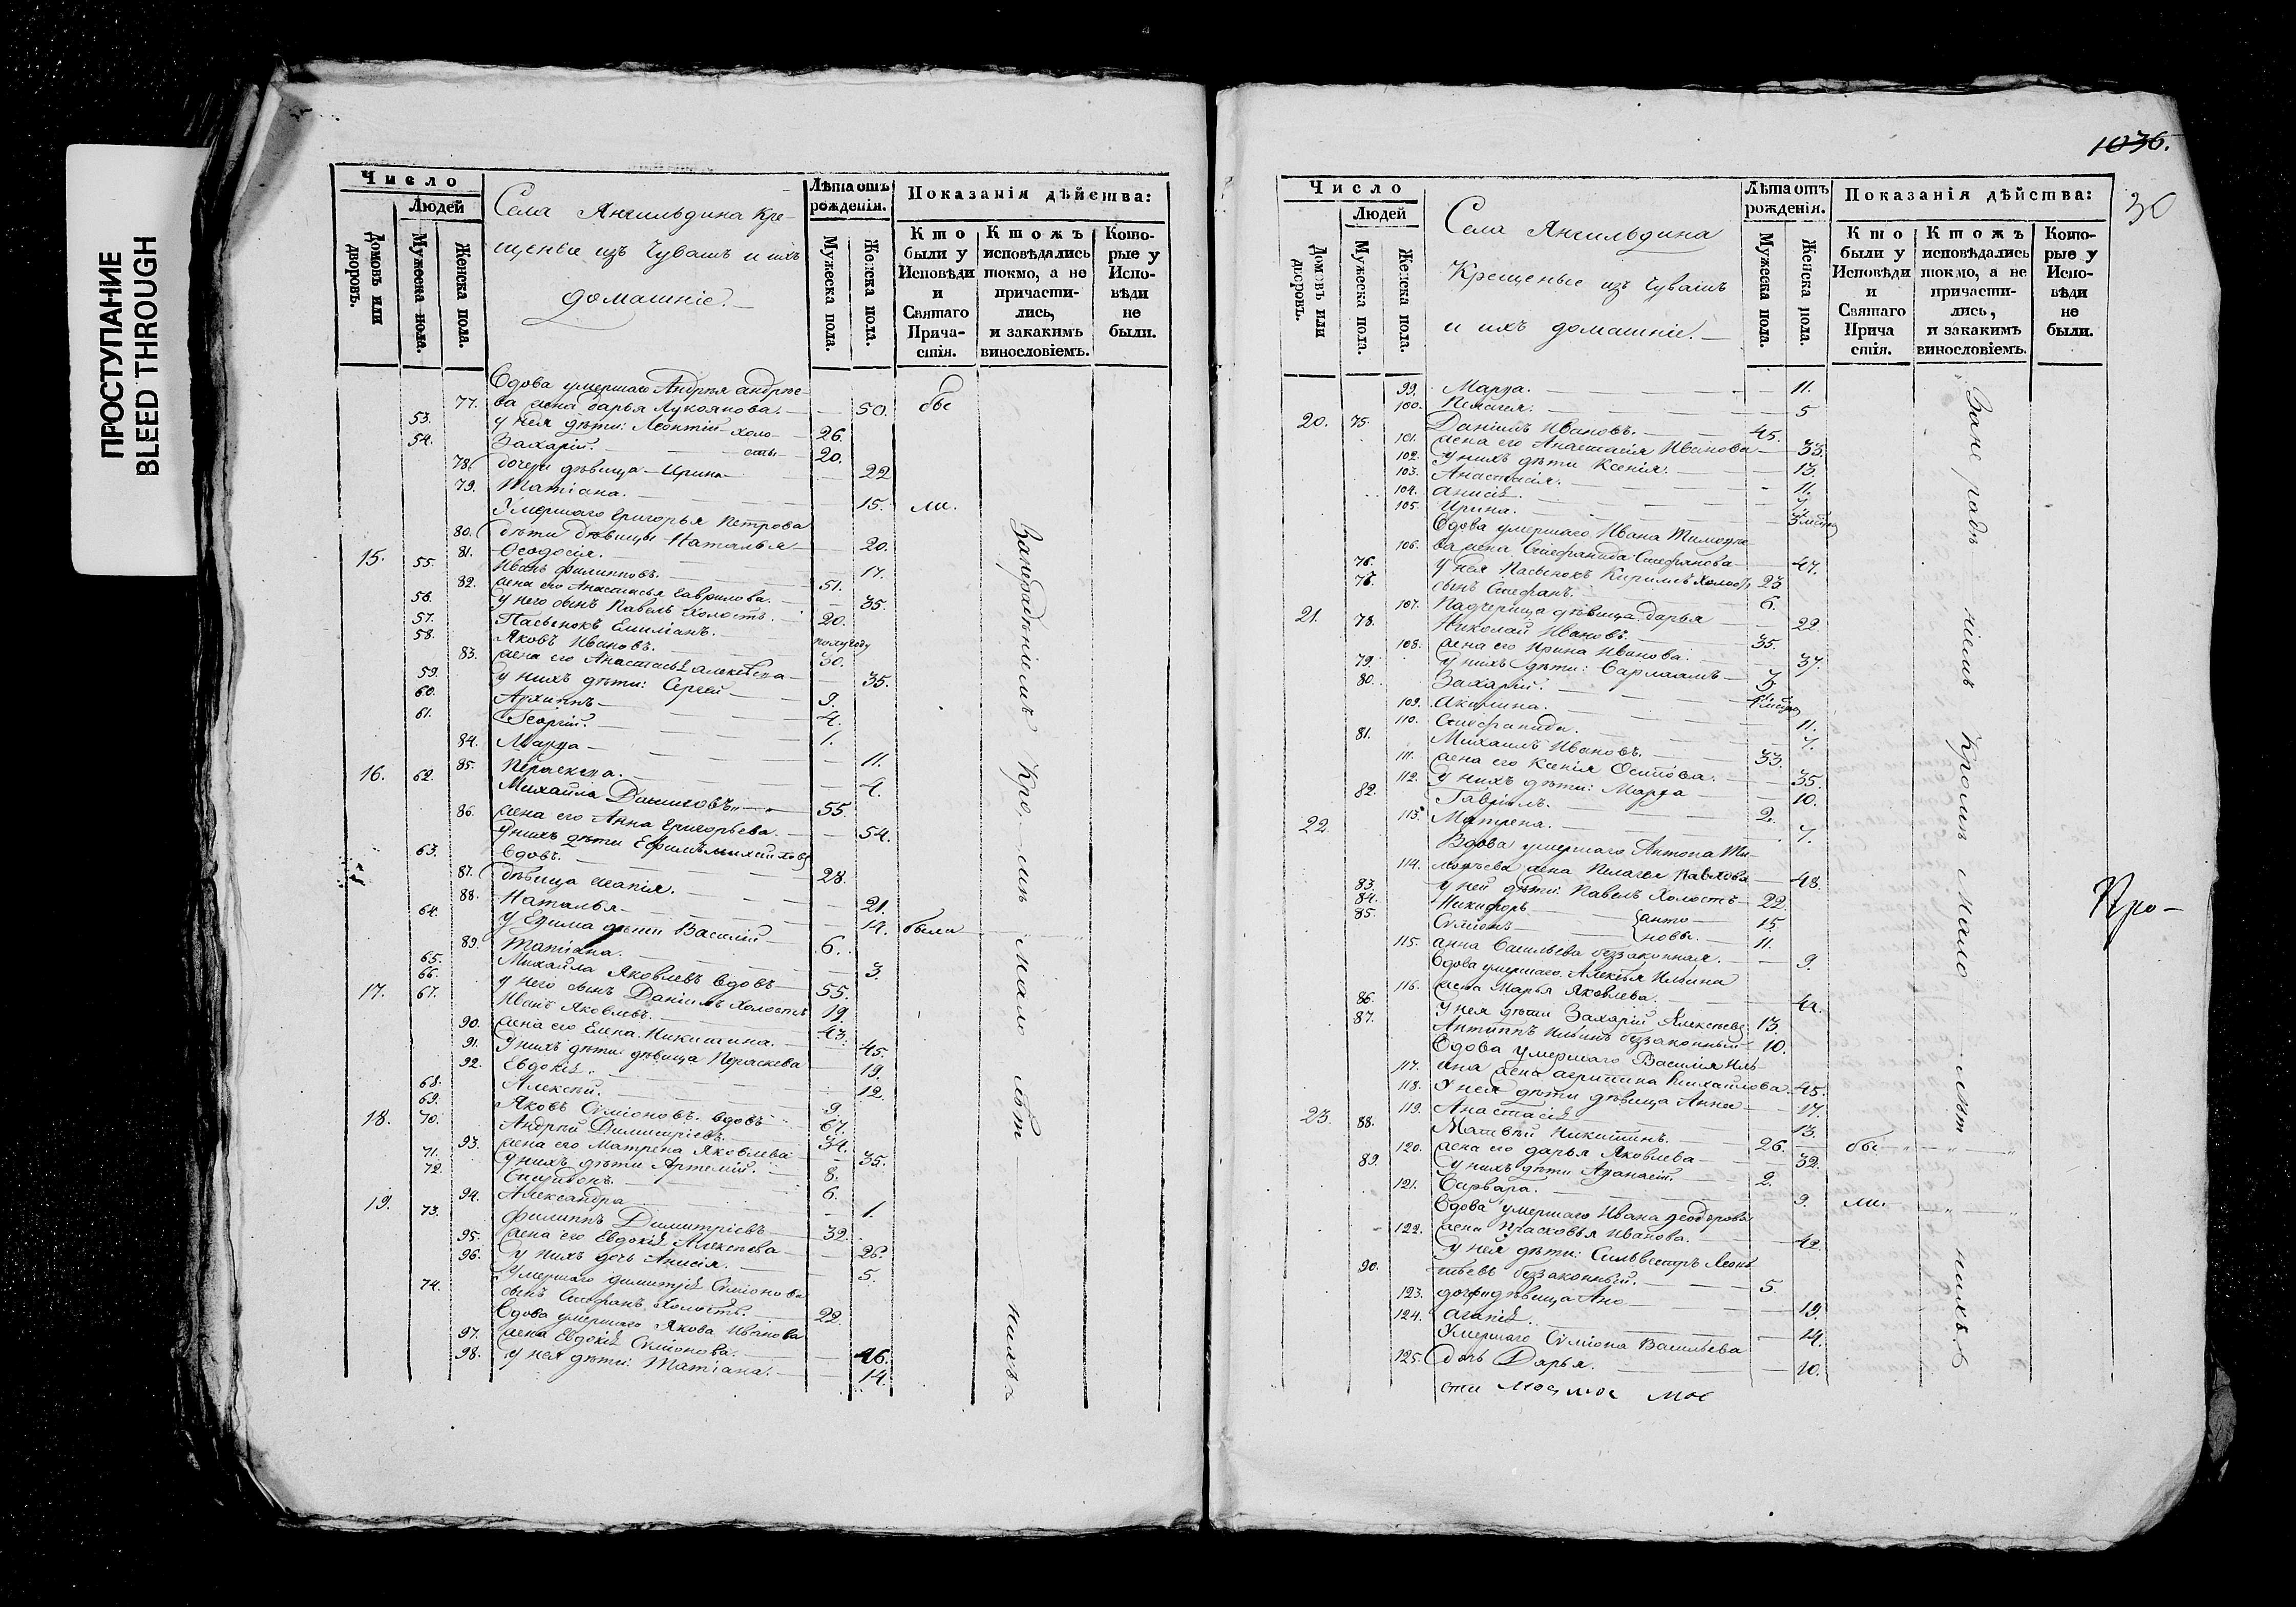 ПРОСТУПАНИЕ
BLEED THROUGH
Число
Людей
Домовъ или дворовъ.
Мужеска пола.
Женска пола.
Села Янгильдина Кре-
щеные изъ Чувашъ и ихъ
домашніе.
Лѣта отъ рожденія.
Мужеска пола.
Женска пола.
Показанія дѣйства:
Кто были у Исповѣди и Святаго Прича-стія.
Ктожъ исповѣдались токмо, а не причасти-лись, и закакимъ винословіемъ.
Кото-рые у Испо-вѣди не были.
Вдова умершаго Андрея Андрее-
77. ва жена Дарья Лукоянова. 50. бы
53. у нея дѣти: Леонтій холо- 26.
54. Захарій. сты 20.
78. дочери дѣвица Ирина 22
79. Татіана. 15. ли.
Умершаго Григорья Петрова
80. дѣти дѣвицы Наталья 20.
81. Ѳеодосія. 17.
15. 55. Иванъ Филипповъ. 51.
82. жена его Анастасья Гаврилова. 35.
56. У него сынъ Павелъ Холостъ. 20.
57. Пасынокъ Емиліанъ. полугоду
58. Яковъ Ивановъ. 30.
83. жена его Анастасья Алексѣева 35.
59. у нихъ дѣти: Сергей 9.
60. Архиппъ 4.
61. Георгій. 1.
84. Марѳа 11.
85. Параскева. 4.
16. 62. Михайла Данииловъ 55.
86. жена его Анна Григорьева. 54.
у нихъ дѣти Ефимъ Михайловъ
63. вдовъ. 28.
87. дѣвица Агапія. 21.
88. Наталья 14. были
64. У Ефима дѣти Василій 6.
89. Татіана. 3.
65. Михайла Яковлевъ вдовъ 55.
66. у него сынъ Даніилъ Холостъ 19
17. 67. Иванъ Яковлевъ. 43.
90. жена его Елена Никитина. 45.
91. У нихъ дѣти дѣвица Параскева 19.
92. Евдокія. 12.
68. Алексѣй. 9.
69. Яковъ Симіоновъ вдовъ 67.
18. 70. Андрей Димитріевъ 34.
93. жена его Матрена Яковлева 35.
71. у нихъ дѣти Артемій. 8.
72. Спиридонъ. 6.
94. Александра 1.
19. 73. Филиппъ Димитріевъ 32.
95. жена его Евдокія Алексѣева 26.
96. у нихъ дочь Анисія. 5.
Умершаго Димитрія Симіонова
74. сынъ Стефанъ Холостъ. 22.
Вдова умершаго Якова Иванова
97. жена Евдокія Симіонова. 46.
98. у нея дѣти: Татіана. 14.
За нерадѣніемъ Кромѣ малолѣтнихъ
1036.
30
Число
Людей
Домовъ или дворовъ.
Мужеска пола.
Женска пола.
Села Янгильдина
Крещеные изъ Чувашъ
и ихъ домашніе.
Лѣта отъ рожденія.
Мужеска пола.
Женска пола.
Показанія дѣйства:
Кто были у Исповѣди и Святаго Прича стія.
Ктожъ исповѣдались токмо, а не причасти-лись, и закакимъ винословіемъ.
Кото-рые у Испо-вѣди не были.
99. Марѳа. 11.
100. Пелагея. 5
20. 75. Даніилъ Ивановъ. 45.
101. жена его Анастасія Иванова 33.
102. У нихъ дѣти Ксенія. 13.
103. Анастасія. 11.
104. Анисія
105. Ирина.
Вдова умершаго Ивана Тимоѳее-
106. ва жена Стефанида Стефанова 47.
76. у нея Пасынокъ Кирилъ Холостъ 23
76. сынъ Стефанъ. 6.
107. Падчерица дѣвица Дарья 22.
21. 78. Николай Ивановъ. 35.
108. жена его Ирина Иванова. 37.
79. у нихъ дѣти: Варлаамъ 3.
80. Захарій.
109. Акилина. 11.
110. Стефанида. 7.
81. Михаилъ Ивановъ. 33.
111. жена его Ксенія Осипова. 35.
112. у нихъ дѣти: Марѳа 10.
82. Гавріилъ. 2.
113. Матрена. 7.
22. Вдова умершаго Антона Ти-
114. моѳѣева жена Пелагея Павлова 48.
83. у ней дѣти: Павелъ Холостъ 22.
84. Никифоръ анто- 15.
85. Симіонъ новы. 11.
115. Анна Васильева беззаконная. 9.
Вдова умершаго Алексѣя Ильина
116. жена Марья Яковлева. 44.
86. У нея дѣти Захарій Алексѣевъ 13.
87. Антиппъ Ильинъ беззаконный 10.
Вдова умершаго Василія Иль-
117. ина жена Агрипина Михайлова 45.
118. У нея дѣти дѣвица Анна 17.
119. Анастасія 13.
23. 88. Матвѣй Никитинъ. 26. бы
120. жена его Дарья Яковлева 32.
89. У нихъ дѣти Аѳанасій. 2.
121. Варвара. 9. ли.
Вдова умершаго Ивана Ѳеодорова
122. жена Прасковья Иванова. 42.
у нея дѣти: Сильвестръ Леон
90. тьевъ беззаконный. 5.
123. дочери дѣвица Ан 19.
124. Агапія. 14.
Умершаго Симіона Васильева
125. дочь Дарья. 10.
За нерадѣніемъ Кромѣ Малолѣтнихъ
Про-